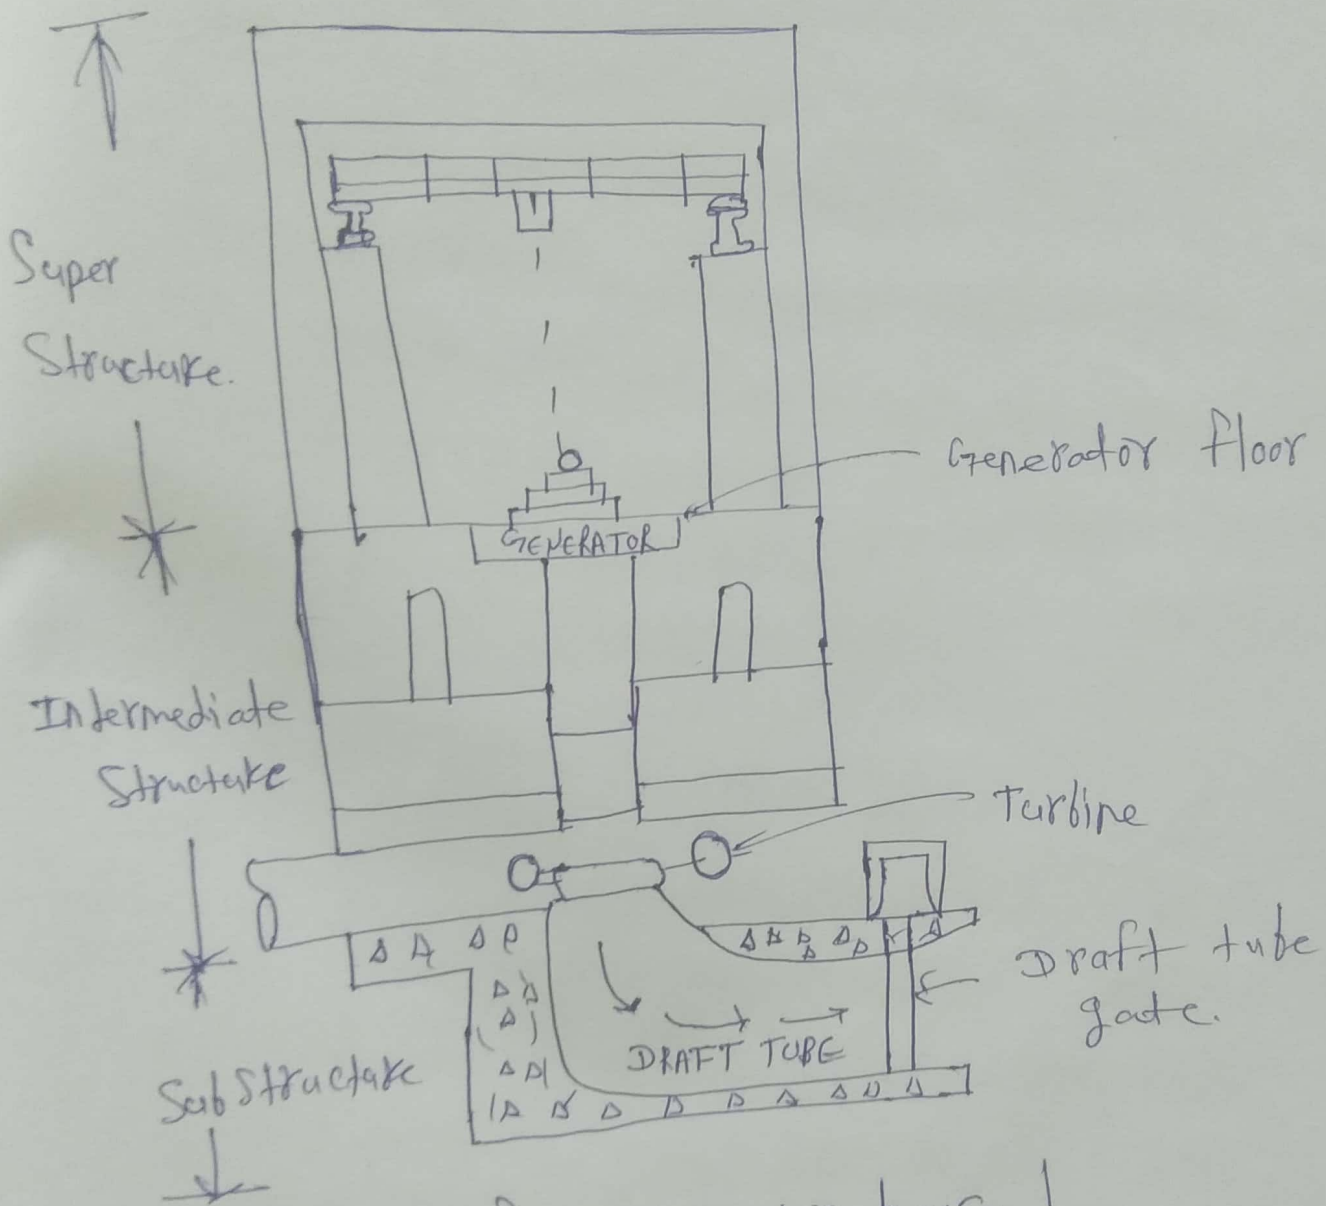 Super
Structure.
Generator floor
GENERATOR
Intermediate
Structure
Turbine
Draft tube
gate.
DRAFT TUBE
Substructure